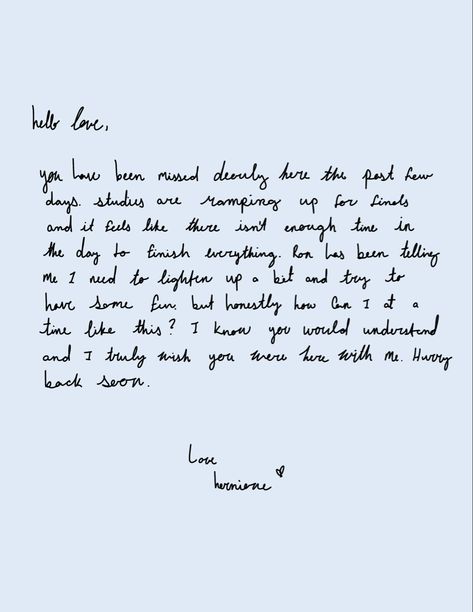 hello love,
you have been missed dearly here the past few
days. studies are ramping up for finals
and it feels like there isn't enough time in
the day to finish everything. Ron has been telling
me I need to lighten up a bit and try to
have some fun. but honestly how can I at a
time like this? I know you would understand
and I truly wish you were here with me. Hurry
back soon.
Love
hermione